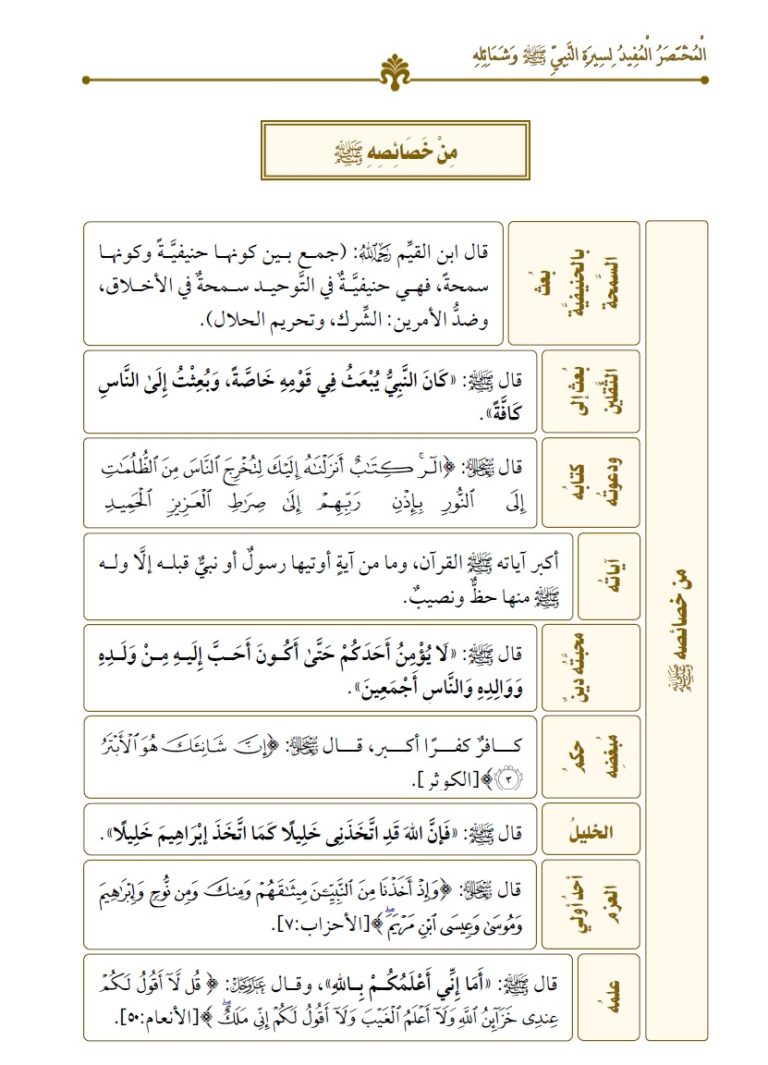 الْمُخْتَصَرُ الْمُفِيدُ لِسِيرَةِ النَّبِيِّ ﷺ وَشَمَائِلِهِ
مِنْ خَصَائِصِهِ ﷺ
من خصائصه ﷺ
بُعث
بالحنيفيَّة
السمَّحة
قال ابن القيِّم رَحِمَهُ ٱللَّهُ: (جمع بين كونها حنيفيَّةً وكونها
سمحةً، فهي حنيفيَّةٌ في التَّوحيد سمحةٌ في الأخلاق،
وضدُّ الأمرين: الشِّرك، وتحريم الحلال).
بُعث إلى
الثَّقلين
قال ﷺ: «كَانَ النَّبِيُّ يُبْعَثُ فِي قَوْمِهِ خَاصَّةً، وَبُعِثْتُ إِلَىٰ النَّاسِ
كَافَّةً».
كتابُه
ودعوتُه
قال سُبْحَانَهُ وَتَعَالَىٰ: ﴿الٓرۚ كِتَٰبٌ أَنزَلۡنَٰهُ إِلَيۡكَ لِتُخۡرِجَ ٱلنَّاسَ مِنَ ٱلظُّلُمَٰتِ
إِلَى ٱلنُّورِ بِإِذۡنِ رَبِّهِمۡ إِلَىٰ صِرَٰطِ ٱلۡعَزِيزِ ٱلۡحَمِيدِ
آياتُه
أكبر آياته ﷺ القرآن، وما من آيةٍ أوتيها رسولٌ أو نبيٌّ قبله إلَّا وله
ﷺ منها حظٌّ ونصيبٌ.
محبَّتُه دينٌ
قال ﷺ: «لَا يُؤْمِنُ أَحَدُكُمْ حَتَّىٰ أَكُونَ أَحَبَّ إِلَيهِ مِنْ وَلَدِهِ
وَوَالِدِهِ وَالنَّاسِ أَجْمَعِينَ».
حكمُ
مُبغضِه
كافرٌ كفرًا أكبر، قال سُبْحَانَهُ وَتَعَالَىٰ: ﴿إِنَّ شَانِئَكَ هُوَ ٱلۡأَبۡتَرُ
٣﴾[الكوثر].
الخليلُ
قال ﷺ: «فَإِنَّ اللهَ قَدِ اتَّخَذَنِي خَلِيلًا كَمَا اتَّخَذَ إِبْرَاهِيمَ خَلِيلًا».
أحدُ أولي
العزم
قال سُبْحَانَهُ وَتَعَالَىٰ: ﴿وَإِذۡ أَخَذۡنَا مِنَ ٱلنَّبِيِّـۧنَ مِيثَٰقَهُمۡ وَمِنكَ وَمِن نُّوحٖ وَإِبۡرَٰهِيمَ
وَمُوسَىٰ وَعِيسَى ٱبۡنِ مَرۡيَمَۖ﴾[الأحزاب:٧].
علمُه
قال ﷺ: «أَمَا إِنِّي أَعْلَمُكُمْ بِاللهِ»، وقال عَزَّوَجَلَّ: ﴿ قُل لَّآ أَقُولُ لَكُمۡ
عِندِي خَزَآئِنُ ٱللَّهِ وَلَآ أَعۡلَمُ ٱلۡغَيۡبَ وَلَآ أَقُولُ لَكُمۡ إِنِّي مَلَكٌۖ ﴾[الأنعام:٥٠].